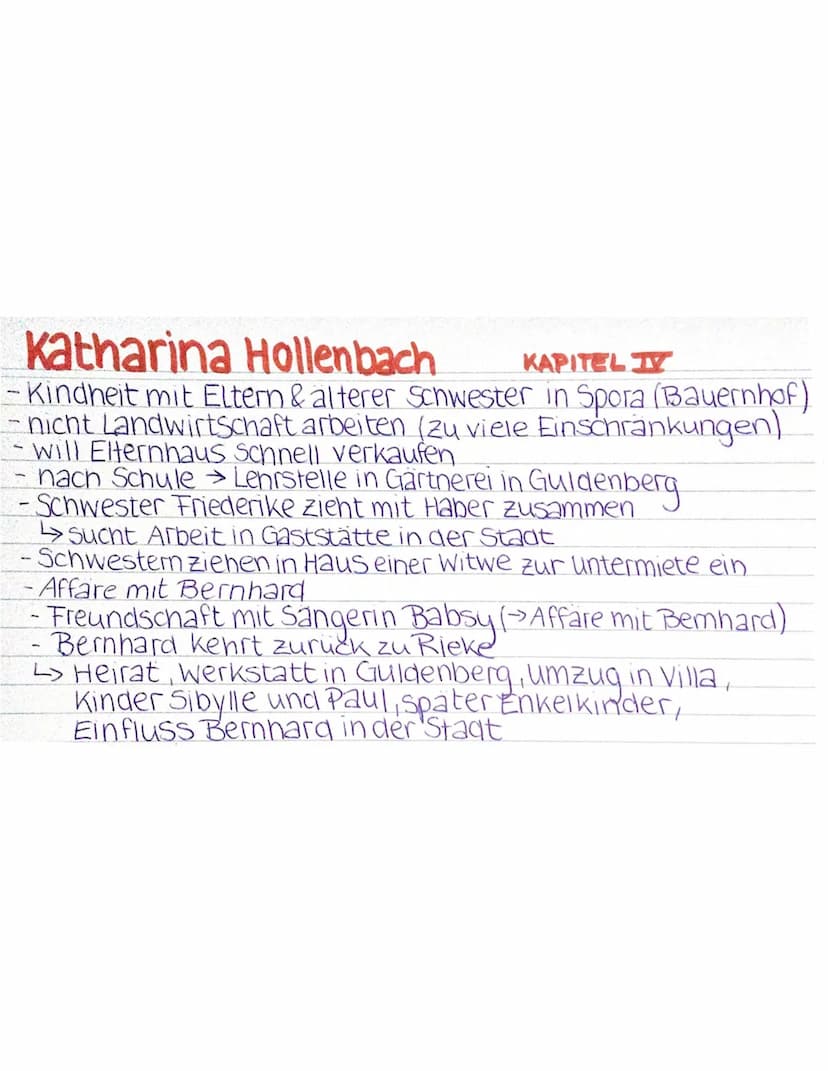 Katharina Hollenbach KAPITEL IV
- Kindheit mit Eltern & älterer Schwester in Spora (Bauernhof)
- nicht Landwirtschaft arbeiten (zu viele Einschränkungen)
- will Elternhaus schnell verkaufen
- nach Schule → Lehrstelle in Gärtnerei in Guldenberg
- Schwester Friederike zieht mit Haber zusammen
↳ sucht Arbeit in Gaststätte in der Stadt
- Schwestern ziehen in Haus einer Witwe zur untermiete ein
- Affäre mit Bernhard
- Freundschaft mit Sängerin Babsy (→ Affäre mit Bernhard)
- Bernhard kehrt zurück zu Rieke
↳ Heirat, Werkstatt in Guldenberg, umzug in Villa,
Kinder Sibylle und Paul, später Enkelkinder,
Einfluss Bernhard in der Stadt